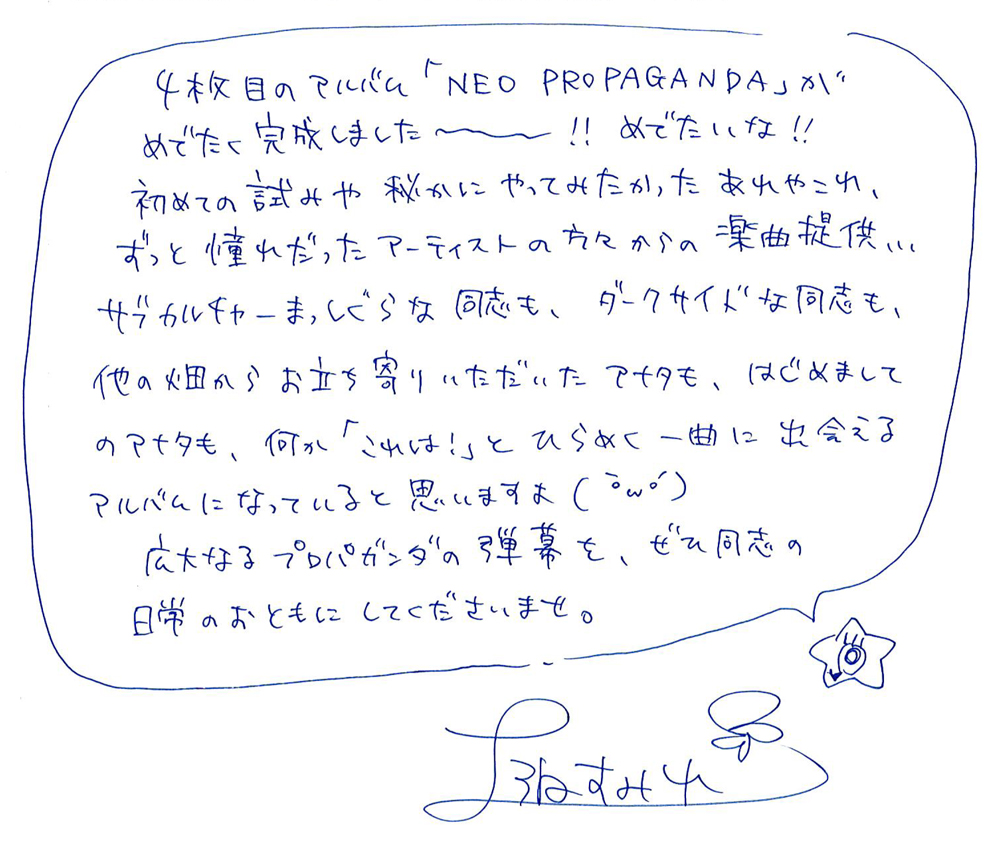 4枚目のアルバム「NEO PROPAGANDA」が
めでたく完成しました〜〜!! めでたいな!!
初めての試みや秘かにやってみたかったあれやこれ、
ずっと憧れだったアーティストの方々からの楽曲提供...
サブカルチャーまっしぐらな同志も、ダークサイドな同志も、
他の畑からお立ち寄りいただいたアナタも、はじめまして
のアナタも、何か「これは!」とひらめく一曲に出会える
アルバムになっていると思いますよ(˘ω˘)
広大なるプロパガンダの弾幕を、ぜひ同志の
日常のおともにしてくださいませ。
上坂すみれ